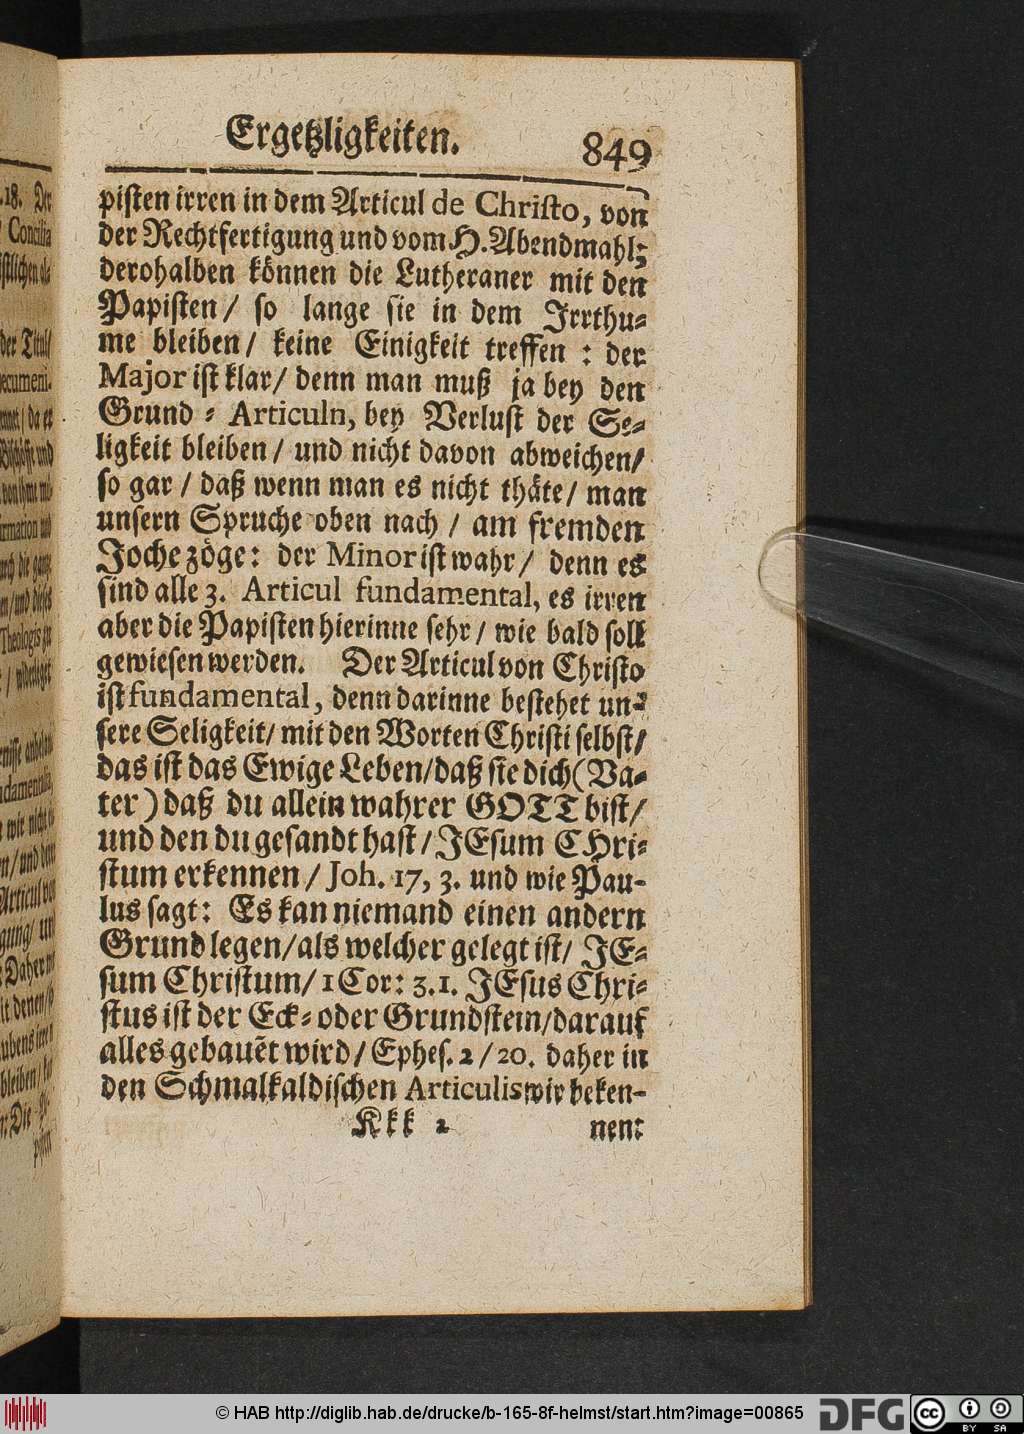 Ergetzligkeiten. 849
pisten irren in dem Articul de Christo, von
der Rechtfertigung und vom H. Abendmahl;
derohalben können die Lutheraner mit den
Papisten / so lange sie in dem Irrthu-
me bleiben / keine Einigkeit treffen : der
Major ist klar / denn man muß ja bey den
Grund-Articuln, bey Verlust der Se-
ligkeit bleiben / und nicht davon abweichen /
so gar / daß wenn man es nicht thäte / man
unsern Spruche oben nach / am fremden
Joche zöge: der Minor ist wahr / denn es
sind alle 3. Articul fundamental, es irren
aber die Papisten hierinne sehr / wie bald soll
gewiesen werden. Der Articul von Christo
ist fundamental, denn darinne bestehet un-
sere Seligkeit / mit den Worten Christi selbst /
das ist das Ewige Leben / daß sie dich (Va-
ter) daß du allein wahrer GOTT bist /
und den du gesandt hast / JEsum CHri-
stum erkennen / Joh. 17, 3. und wie Pau-
lus sagt: Es kan niemand einen andern
Grund legen / als welcher gelegt ist / JE-
sum Christum / 1 Cor: 3. 1. JEsus Chri-
stus ist der Eck- oder Grundstein / darauf
alles gebauẽt wird / Ephes. 2 / 20. daher in
den Schmalkaldischen Articulis wir beken-
Kkk 2 nen:
18. Der
Concilia
der Titul /
ecumeni-
Theologis zu
Articul von
Daher
bleiben /
Die
© HAB http://diglib.hab.de/drucke/b-165-8f-helmst/start.htm?image=00865 DFG cc BY SA